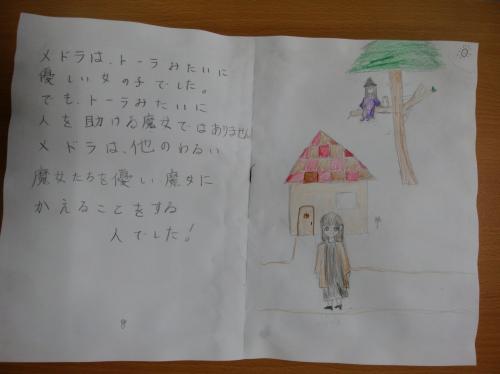 メドラは、トーラみたいに
優しい女の子でした。
でも、トーラみたいに
人を助ける魔女ではありません
メドラは、他のわるい
魔女たちを優しい魔女に
かえることをする
人でした!
8